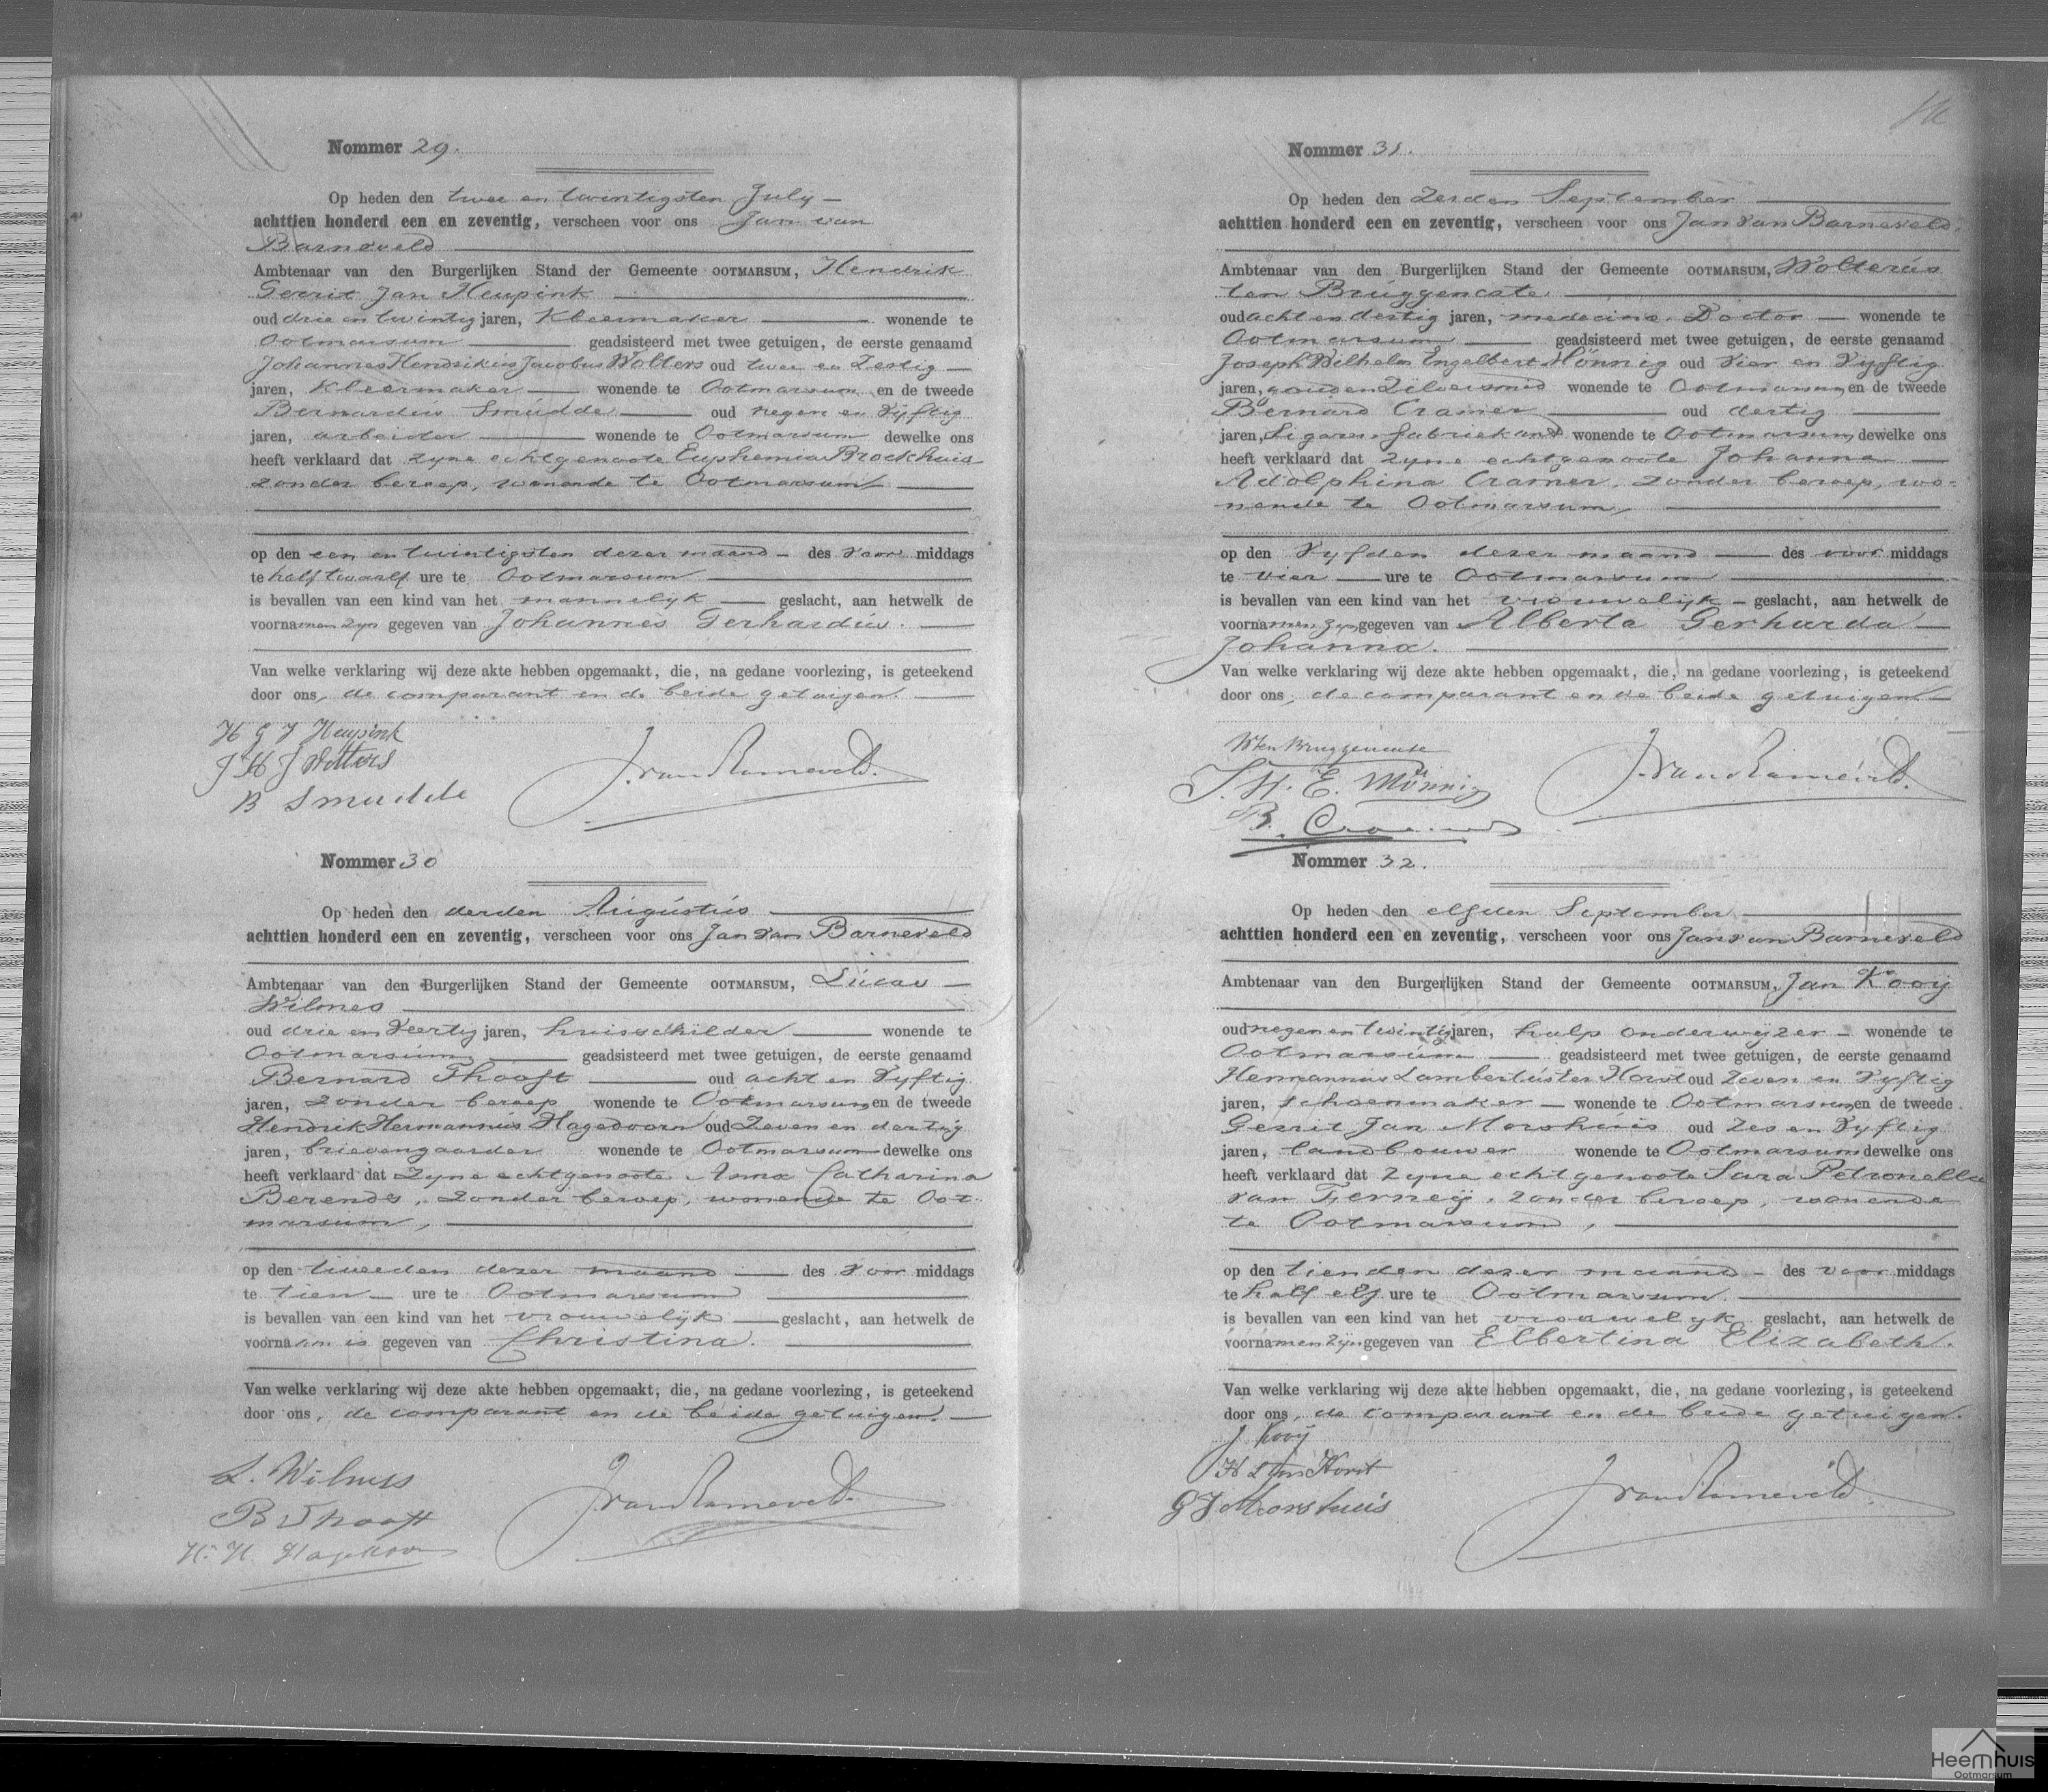 Nommer 29.
Op heden den twee en twintigsten July
achttien honderd een en zeventig, verscheen voor ons Jan van
Barneveld
Ambtenaar van den Burgerlijken Stand der Gemeente OOTMARSUM, Hendrik
Gerrit Jan Heupink
oud drie en twintig jaren, Kleermaker wonende te
Ootmarsum geadsisteerd met twee getuigen, de eerste genaamd
Johannes Hendrikus Jacobus Wolters oud twee en Zestig
jaren, Kleermaker wonende te Ootmarsum en de tweede
Bernardus Smudde oud negen en Vyftig
jaren, arbeider wonende te Ootmarsum dewelke ons
heeft verklaard dat zyne echtgenoote Euphemia Brockhuis
zonder beroep, wonende te Ootmarsum
op den een en twintigsten dezer maand des voor middags
te half twaalf ure te Ootmarsum
is bevallen van een kind van het mannelijk geslacht, aan hetwelk de
voornamen zyn gegeven van Johannes Gerhardus.
Van welke verklaring wij deze akte hebben opgemaakt, die, na gedane voorlezing, is geteekend
door ons, de comparant en de beide getuigen
H G J Heupink
J H J Wolters
B Smudde
J. van Barneveld.
Nommer 30
Op heden den derden Augustus
achttien honderd een en zeventig, verscheen voor ons Jan van Barneveld
Ambtenaar van den Burgerlijken Stand der Gemeente OOTMARSUM, Lucas
Wilmes
oud drie en Veertig jaren, huisschilder wonende te
Ootmarsum geadsisteerd met twee getuigen, de eerste genaamd
Bernard Thooft oud acht en Vyftig
jaren, zonder beroep wonende te Ootmarsum en de tweede
Hendrik Hermannus Hagedoorn oud Zeven en dertig
jaren, brievengaarder wonende te Ootmarsum dewelke ons
heeft verklaard dat Zyne echtgenoote Anna Catharina
Berends, zonder beroep, wonende te Oot-
marsum,
op den tweeden dezer maand des voor middags
te tien ure te Ootmarsum
is bevallen van een kind van het vrouwelijk geslacht, aan hetwelk de
voornaam is gegeven van Christina.
Van welke verklaring wij deze akte hebben opgemaakt, die, na gedane voorlezing, is geteekend
door ons, de comparant en de beide getuigen.
L. Wilmes
B Thooft
H. H. Hagedoorn
J. van Barneveld.
Nommer 31.
Op heden den Zesden September
achttien honderd een en zeventig, verscheen voor ons Jan van Barneveld.
Ambtenaar van den Burgerlijken Stand der Gemeente OOTMARSUM, Wolterus
ten Bruggencate
oud acht en dertig jaren, medecine Doctor wonende te
Ootmarsum geadsisteerd met twee getuigen, de eerste genaamd
Joseph Wilhelm Engelbert Mönnig oud Vier en Vyftig
jaren, goud en Zilversmid wonende te Ootmarsum en de tweede
Bernard Cramer oud dertig
jaren, Sigaren fabriekant wonende te Ootmarsum, dewelke ons
heeft verklaard dat zyne echtgenoote Johanna
Adolphina Cramer, zonder beroep, wo-
nende te Ootmarsum,
op den Vyfden dezer maand des voor middags
te vier ure te Ootmarsum
is bevallen van een kind van het vrouwelijk geslacht, aan hetwelk de
voornamen zyn gegeven van Alberta Gerharda
Johanna.
Van welke verklaring wij deze akte hebben opgemaakt, die, na gedane voorlezing, is geteekend
door ons, de comparant en de beide getuigen
W ten Bruggencate
J. W. E. Mönnig
B. Cramer
J. van Barneveld.
Nommer 32.
Op heden den elfden September
achttien honderd een en zeventig, verscheen voor ons Jan van Barneveld
Ambtenaar van den Burgerlijken Stand der Gemeente OOTMARSUM, Jan Kooy
oud negen en twintig jaren, hulp onderwyzer wonende te
Ootmarsum geadsisteerd met twee getuigen, de eerste genaamd
Hermannus Lambertus ter Horst oud Zeven en Vyftig
jaren, schoenmaker wonende te Ootmarsum en de tweede
Gerrit Jan Morshuis oud Zes en Vyftig
jaren, landbouwer wonende te Ootmarsum dewelke ons
heeft verklaard dat zyne echtgenoote Sara Petronella
van Ferney, zonder beroep, wonende
te Ootmarsum,
op den tienden dezer maand des voor middags
te half elf ure te Ootmarsum.
is bevallen van een kind van het vrouwelyk geslacht, aan hetwelk de
voornamen zijn gegeven van Elbertina Elizabeth.
Van welke verklaring wij deze akte hebben opgemaakt, die, na gedane voorlezing, is geteekend
door ons, de comparant en de beide getuigen.
J Kooij
H L ter Horst
G J Morshuis
J van Barneveld.
Heemhuis
Ootmarsum